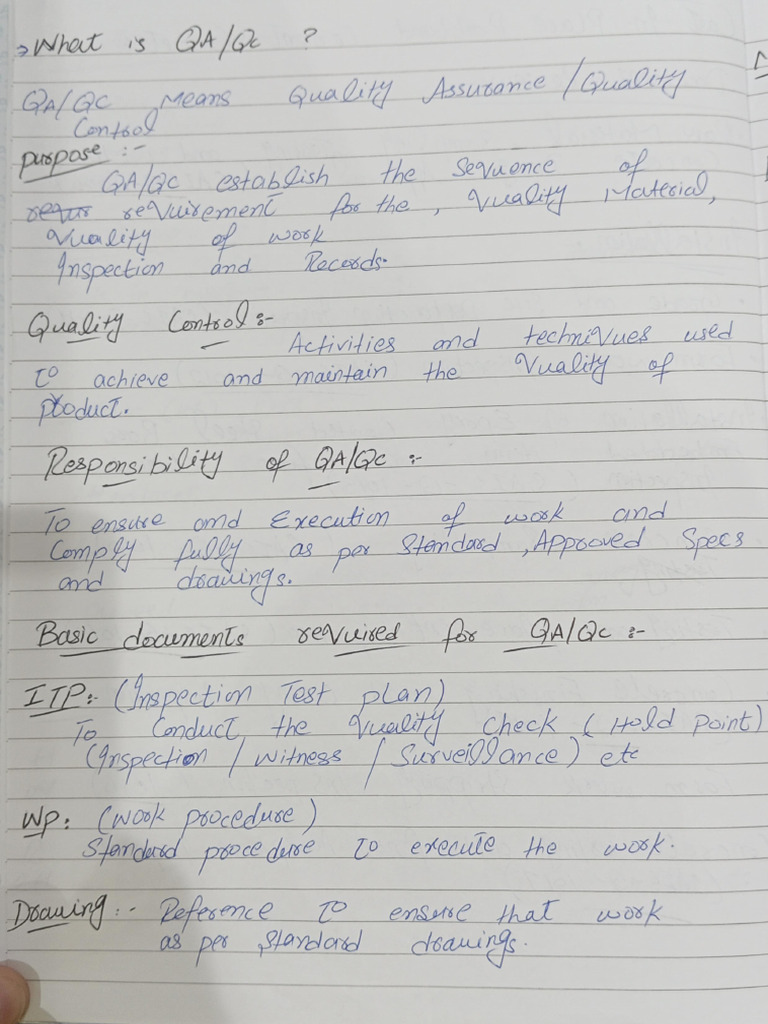 → What is QA/QC ?
QA/QC Means Quality Assurance / Quality
Control
purpose :-
QA/QC establish the Sequence of
requirement for the, Quality Material,
Quality of work
Inspection and Records.
Quality Control :-
Activities and techniques used
To achieve and maintain the Quality of
product.
Responsibility of QA/QC :-
To ensure and Execution of work and
Comply fully as per Standard, Approved Specs
and drawings.
Basic documents required for QA/QC :-
ITP:- (Inspection Test plan)
To Conduct the Quality Check (Hold point)
(Inspection / Witness / Surveillance) etc
WP: (Work procedure)
Standard procedure to execute the work.
Drawing :- Reference To ensure that work
as per Standard drawings.